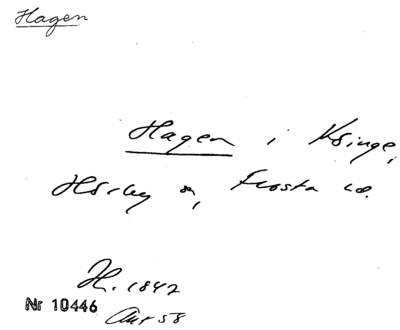 Hagen
Hagen i Ksinge,
Hörby sn, Frosta hd.
H. 1842
Nr 10446
Avt 58